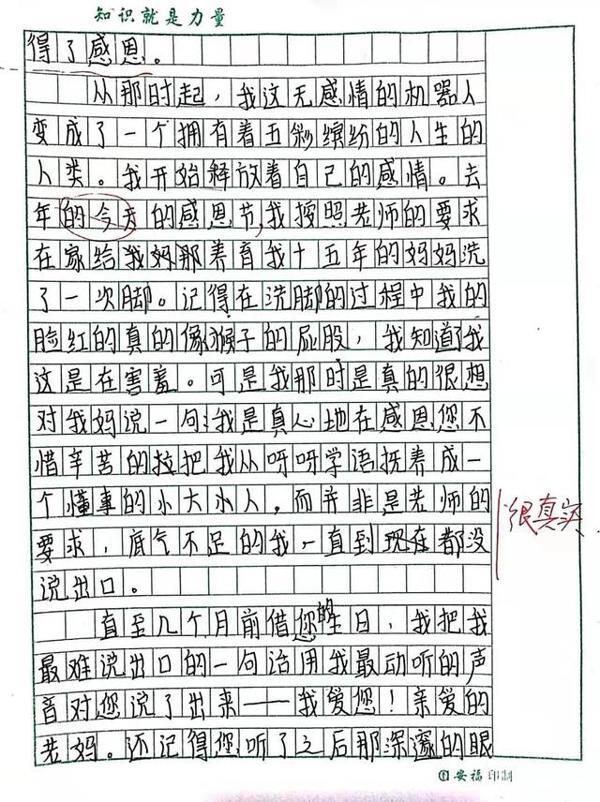 知识就是力量
得了感恩。
从那时起，我这无感情的机器人
变成了一个拥有着五彩缤纷的人生的
人类。我开始释放着自己的感情。去
年的今天的感恩节，我按照老师的要求
在家给我妈那养育我十五年的妈妈洗
了一次脚。记得在洗脚的过程中我的
脸红的真的像猴子的屁股，我知道我
这是在害羞。可是我那时是真的很想
对我妈说一句：我是真心地在感恩您不
惜辛苦的拉把我从呀呀学语抚养成一
个懂事的小大小人。而并非是老师的
很真实
要求，底气不足的我一直到现在都没
说出口。
直至几个月前借您的生日，我把我
最难说出口的一句话用我最动听的声
音对您说了出来——我爱您！亲爱的
老妈。还记得您听了之后那深邃的眼
安福印制